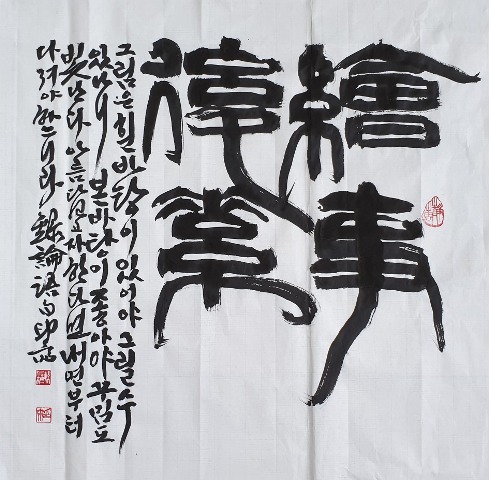 繪事
後素
그림은 흰 바탕이 있어야 그릴 수
있나니 본바탕이 좋아야 꾸밈도
빛난다 아름답고자 한다면 내면부터
다져야 하느니라 論語句